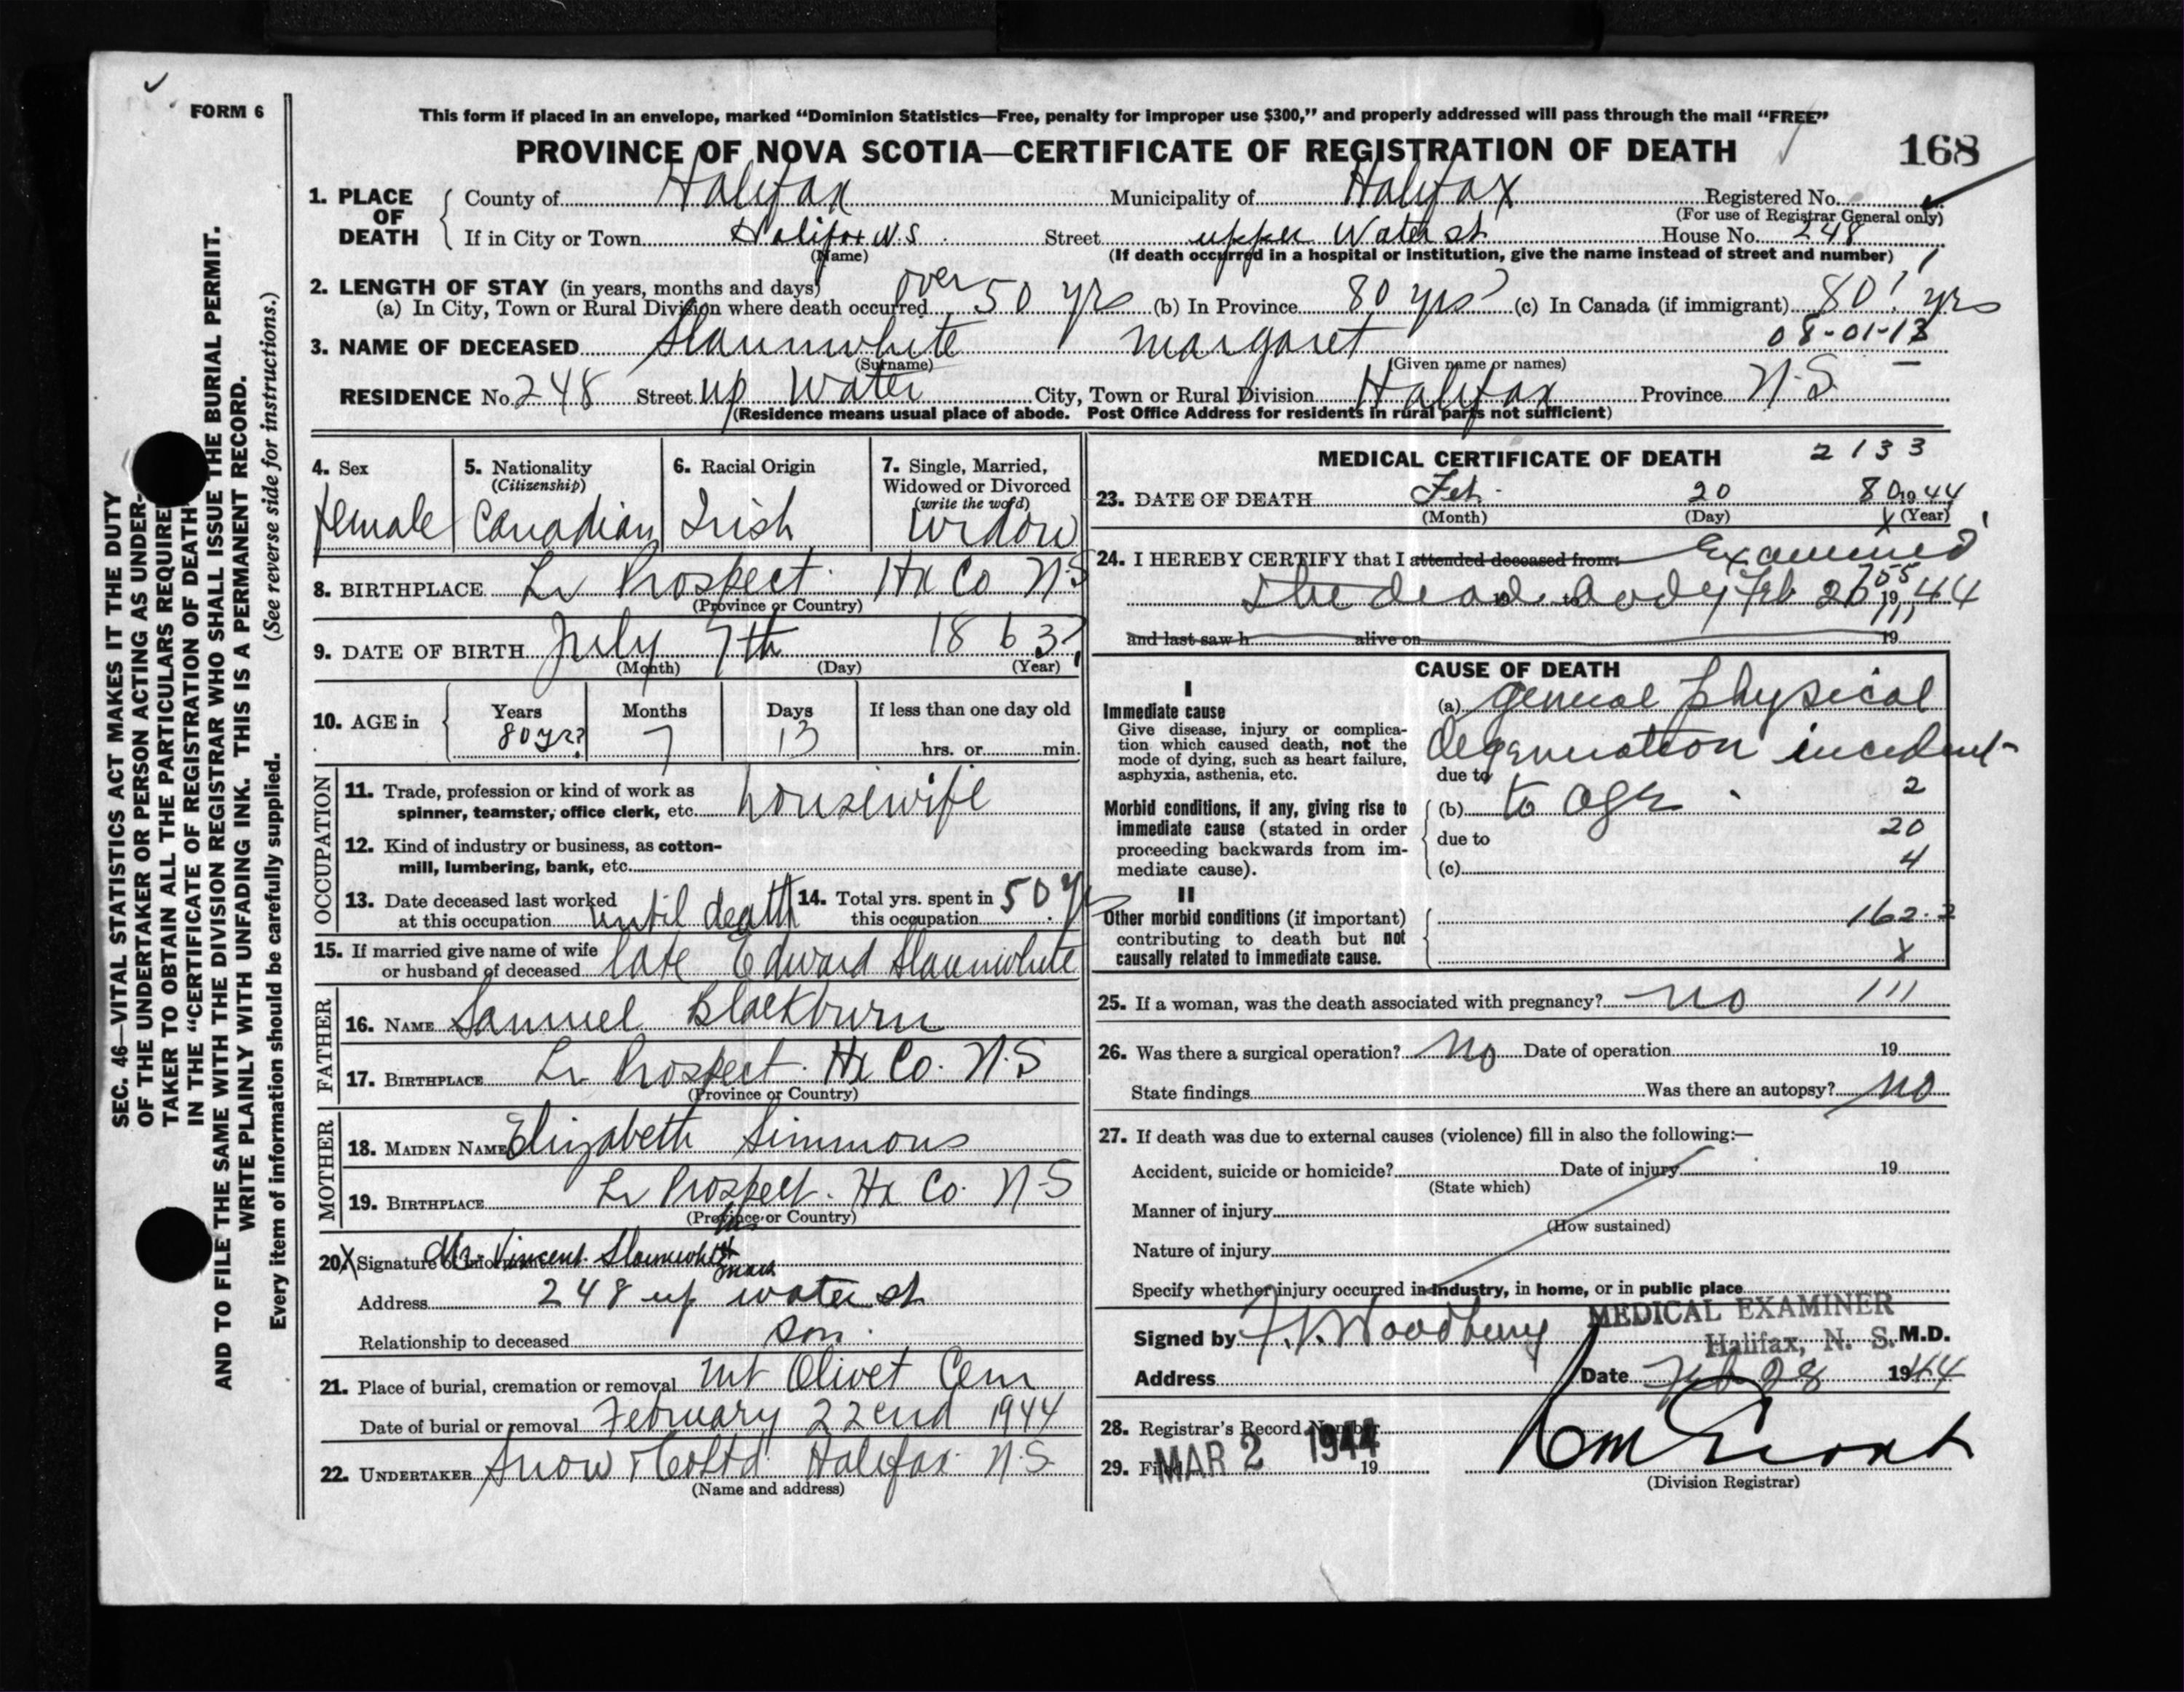 FORM 6
This form if placed in an envelope, marked "Dominion Statistics—Free, penalty for improper use $300," and properly addressed will pass through the mail "FREE"
PROVINCE OF NOVA SCOTIA—CERTIFICATE OF REGISTRATION OF DEATH
168
1. PLACE OF DEATH
County of Halifax Municipality of Halifax Registered No.
(For use of Registrar General only)
If in City or Town Halifax N.S. Street upper Water St House No. 248
(Name) (If death occurred in a hospital or institution, give the name instead of street and number)
2. LENGTH OF STAY (in years, months and days)
(a) In City, Town or Rural Division where death occurred over 50 yrs (b) In Province 80 yrs? (c) In Canada (if immigrant) 80! yrs
08-01-13
3. NAME OF DECEASED Slaunwhite Margaret
(Surname) (Given name or names)
RESIDENCE No. 248 Street up Water City, Town or Rural Division Halifax Province N.S.
(Residence means usual place of abode. Post Office Address for residents in rural parts not sufficient)
4. Sex
female
5. Nationality
(Citizenship)
Canadian
6. Racial Origin
Irish
7. Single, Married,
Widowed or Divorced
(write the word)
widow
8. BIRTHPLACE Lr Prospect. Hx Co N.S
(Province or Country)
9. DATE OF BIRTH July 7th 1863?
(Month) (Day) (Year)
10. AGE in
Years Months Days If less than one day old
80 yrs? 7 13 hrs. or min.
OCCUPATION
11. Trade, profession or kind of work as
spinner, teamster, office clerk, etc. housewife
12. Kind of industry or business, as cotton-
mill, lumbering, bank, etc.
13. Date deceased last worked
at this occupation until death
14. Total yrs. spent in
this occupation 50 yrs
15. If married give name of wife
or husband of deceased late Edward Slaunwhite
FATHER
16. NAME Samuel Blackburn
17. BIRTHPLACE Lr Prospect. Hx Co. N.S
(Province or Country)
MOTHER
18. MAIDEN NAME Elizabeth Simmons
19. BIRTHPLACE Lr Prospect. Hx Co. N-S
(Province or Country)
his
20. X Signature of Informant Mr. Vincent Slaunwhite
mark
Address 248 up water st
Relationship to deceased son.
21. Place of burial, cremation or removal Mt Olivet Cem
Date of burial or removal February 22end 1944
22. UNDERTAKER Snow & Co Ltd Halifax N.S.
(Name and address)
MEDICAL CERTIFICATE OF DEATH 2133
23. DATE OF DEATH Feb. 20 80 1944
(Month) (Day) X (Year)
24. I HEREBY CERTIFY that I attended deceased from: Examined
the dead body Feb 20 1944
755
111
and last saw h alive on 19
CAUSE OF DEATH
I
Immediate cause
Give disease, injury or complica-
tion which caused death, not the
mode of dying, such as heart failure,
asphyxia, asthenia, etc.
(a) general physical
degeneration incident
due to
Morbid conditions, if any, giving rise to
immediate cause (stated in order
proceeding backwards from im-
mediate cause).
(b) to age. 2
due to 20
(c) 4
II
Other morbid conditions (if important)
contributing to death but not
causally related to immediate cause.
162.2
X
25. If a woman, was the death associated with pregnancy? no 111
26. Was there a surgical operation? No Date of operation 19
State findings Was there an autopsy? No
27. If death was due to external causes (violence) fill in also the following:—
Accident, suicide or homicide? Date of injury 19
(State which)
Manner of injury
(How sustained)
Nature of injury
Specify whether injury occurred in industry, in home, or in public place
MEDICAL EXAMINER
Halifax, N. S.
Signed by F.V. Woodbury M.D.
Address Date Feb 28 1944
28. Registrar's Record Number
29. Filed MAR 2 1944 19
(Division Registrar)
SEC. 46—VITAL STATISTICS ACT MAKES IT THE DUTY
OF THE UNDERTAKER OR PERSON ACTING AS UNDER-
TAKER TO OBTAIN ALL THE PARTICULARS REQUIRED
IN THE "CERTIFICATE OF REGISTRATION OF DEATH"
AND TO FILE THE SAME WITH THE DIVISION REGISTRAR WHO SHALL ISSUE THE BURIAL PERMIT.
WRITE PLAINLY WITH UNFADING INK. THIS IS A PERMANENT RECORD.
Every item of information should be carefully supplied. (See reverse side for instructions.)